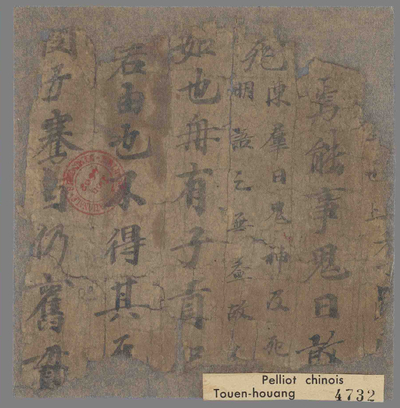 焉能事鬼曰敢
死陳群曰鬼神及死
明語之無益故
如也冉有子貢
若由也不得其死
閔子騫曰仍舊貫
Pelliot chinois
Touen-houang 4732